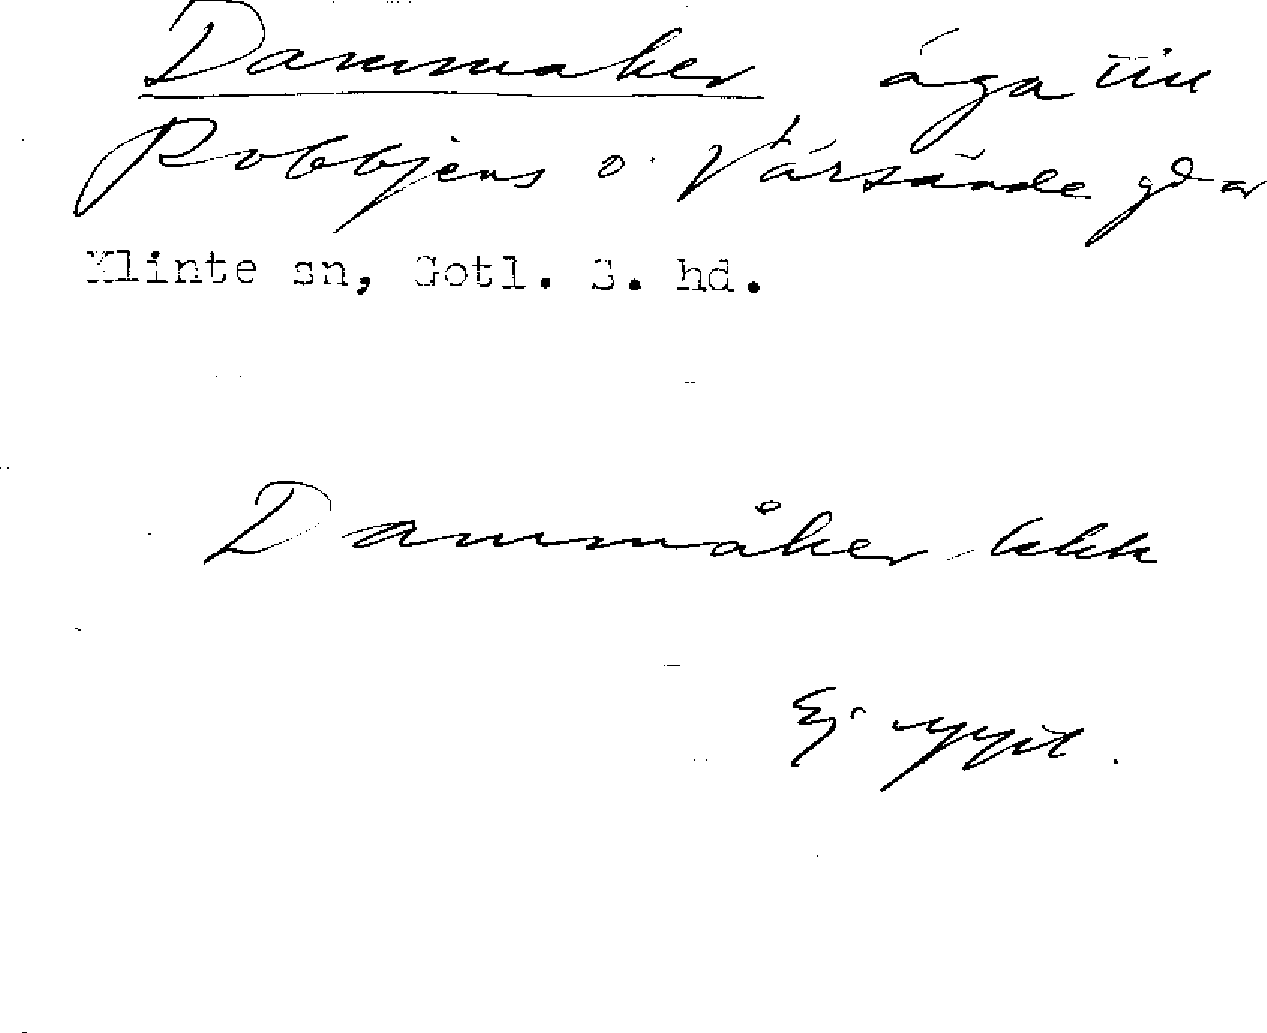 Dammaker äga till
Robbjens o. Värsände gdar
Klinte sn, Gotl. S. hd.
Dammåker ekk
Ej uppt.